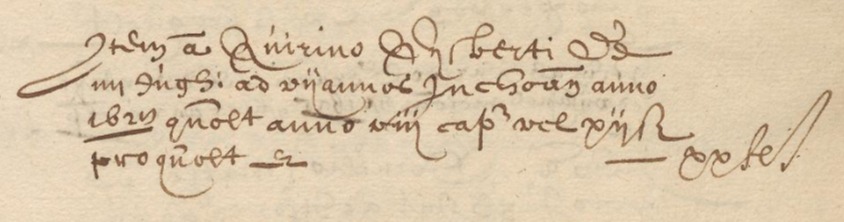 Item a Quirino Gysberti de
iiii Iugh: ad vij annos Inchoan anno
quolt anno viij cap vel xij ß
pro quolt et xx ß